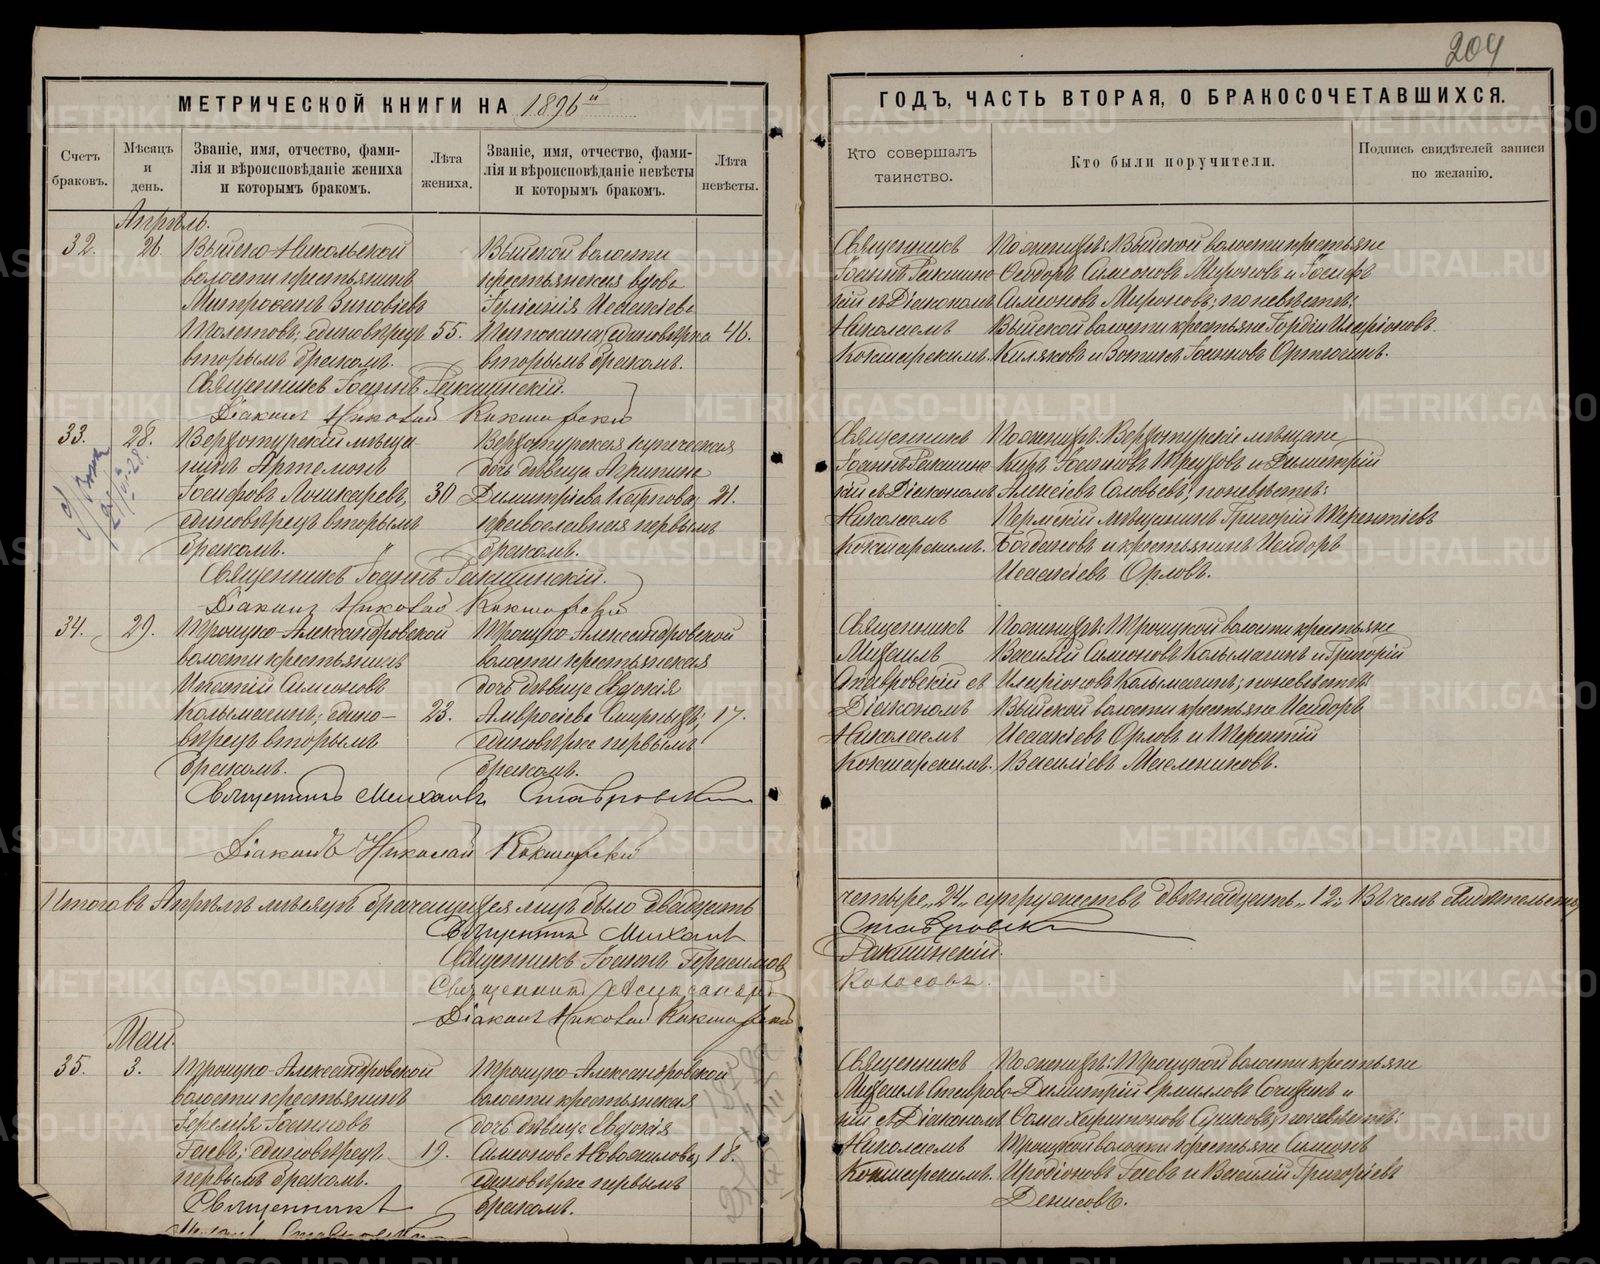 204
МЕТРИЧЕСКОЙ КНИГИ НА 1896й
ГОДЪ, ЧАСТЬ ВТОРАЯ, О БРАКОСОЧЕТАВШИХСЯ.
Счетъ браковъ.
Мѣсяцъ и день.
Званіе, имя, отчество, фами-
лія и вѣроисповѣданіе жениха
и которымъ бракомъ.
Лѣта жениха.
Званіе, имя, отчество, фами-
лія и вѣроисповѣданіе невѣсты
и которымъ бракомъ.
Лѣта невѣсты.
Кто совершалъ
таинство.
Кто были поручители.
Подпись свидѣтелей записи
по желанію.
Апрѣль.
32. 26.
Выйско-Никольской
волости крестьянинъ
Митрофанъ Зиновіевъ
единовѣрецъ 55.
вторымъ бракомъ.
Выйской волости
крестьянская вдова
единовѣрка 46.
вторымъ бракомъ.
Священникъ Іоаннъ Ракшинскій.
Діаконъ Николай Кокшарскій
Священникъ
Іоаннъ Ракшинс-
кій съ Діакономъ
Николаемъ
Кокшарскимъ.
По женихѣ: Выйской волости крестьяне
Ѳеодоръ Симеоновъ Мироновъ и Іосифъ
Симеоновъ Мироновъ; по невѣстѣ:
Выйской волости крестьяне Гордій Иларіоновъ
33. 28.
Верхотурскій мѣща-
нинъ Артемонъ
Іосифовъ Лошкаревъ, 30
единовѣрецъ вторымъ
бракомъ.
Верхотурская купеческая
дочь дѣвица Агрипина
Димитріева Карпова, 21.
православная первымъ
бракомъ.
Священникъ Іоаннъ Ракшинскій.
Діаконъ Николай Кокшарскій
Священникъ
Іоаннъ Ракшинс-
кій съ Діакономъ
Николаемъ
Кокшарскимъ.
По женихѣ: Верхотурскіе мѣщане
Киръ Іоанновъ Треуховъ и Димитрій
Алексіевъ Соловьевъ; по невѣстѣ:
Пермскій мѣщанинъ Григорій Терентіевъ
Богдановъ и крестьянинъ Исидоръ
Исаакіевъ Орловъ.
34. 29.
Троицко-Александровской
волости крестьянинъ
Игнатій Симеоновъ
Колымагинъ; едино- 23.
вѣрецъ вторымъ
бракомъ.
Троицко-Александровской
волости крестьянская
дочь дѣвица Евдокія
Амвросіева Смирныхъ; 17.
единовѣрка первымъ
бракомъ.
Священникъ Михаилъ Ставровскій
Діаконъ Николай Кокшарскій
Священникъ
Михаилъ
Ставровскій съ
Діакономъ
Николаемъ
Кокшарскимъ.
По женихѣ: Троицкой волости крестьяне
Василій Симеоновъ Колымагинъ и Григорій
Иларіоновъ Колымагинъ; по невѣстѣ:
Выйской волости крестьяне Исидоръ
Исаакіевъ Орловъ и Терентій
Василіевъ Масленниковъ.
Итого въ Апрѣлѣ мѣсяцѣ брачащихся лицъ было двадцать
четыре „24„ супружествъ двѣнадцать „12„ Въ чемъ свидѣтельств
Священникъ Михаилъ
Ставровскій
Священникъ Іоаннъ Герасимовъ
Ракшинскій.
Священникъ Александръ
Колосовъ.
Діаконъ Николай Кокшарскій
Май.
35. 3.
Троицко-Александровской
волости крестьянинъ
Іеремія Іоанновъ
Гаевъ; единовѣрецъ 19.
первымъ бракомъ.
Троицко-Александровской
волости крестьянская
дочь дѣвица Евдокія
Симеонова Новоселова; 18.
единовѣрка первымъ
бракомъ.
Священникъ
Священникъ
Михаилъ Ставровс-
кій съ Діакономъ
Николаемъ
Кокшарскимъ.
По женихѣ: Троицкой волости крестьяне
Димитрій Ермиловъ и
Ѳома Харитоновъ по невѣстѣ:
Троицкой волости крестьяне Симеонъ
Иродіоновъ Гаевъ и Василій Григоріевъ
Денисовъ.
METRIKI.GASO-URAL.RU